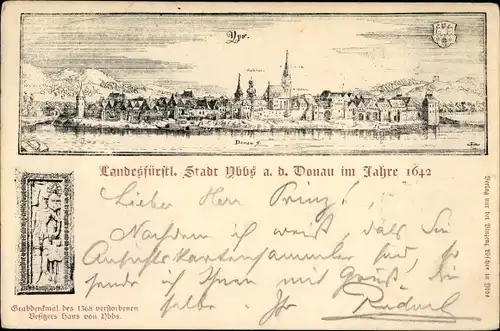 Yps.
Donau f
Landesfürstl. Stadt Ybbs a. d. Donau im Jahre 1642
Lieber Herr Prinz!
Nachdem ich weiß, daß Sie
Ansichtskartensammler sind, so
sende ich Ihnen mit Gruß die-
selbe. Ihr Rudolf
Grabdenkmal des 1368 verstorbenen
Besitzers Hans von Ybbs.
Verlag von der Vinzenz Löscher in Ybbs